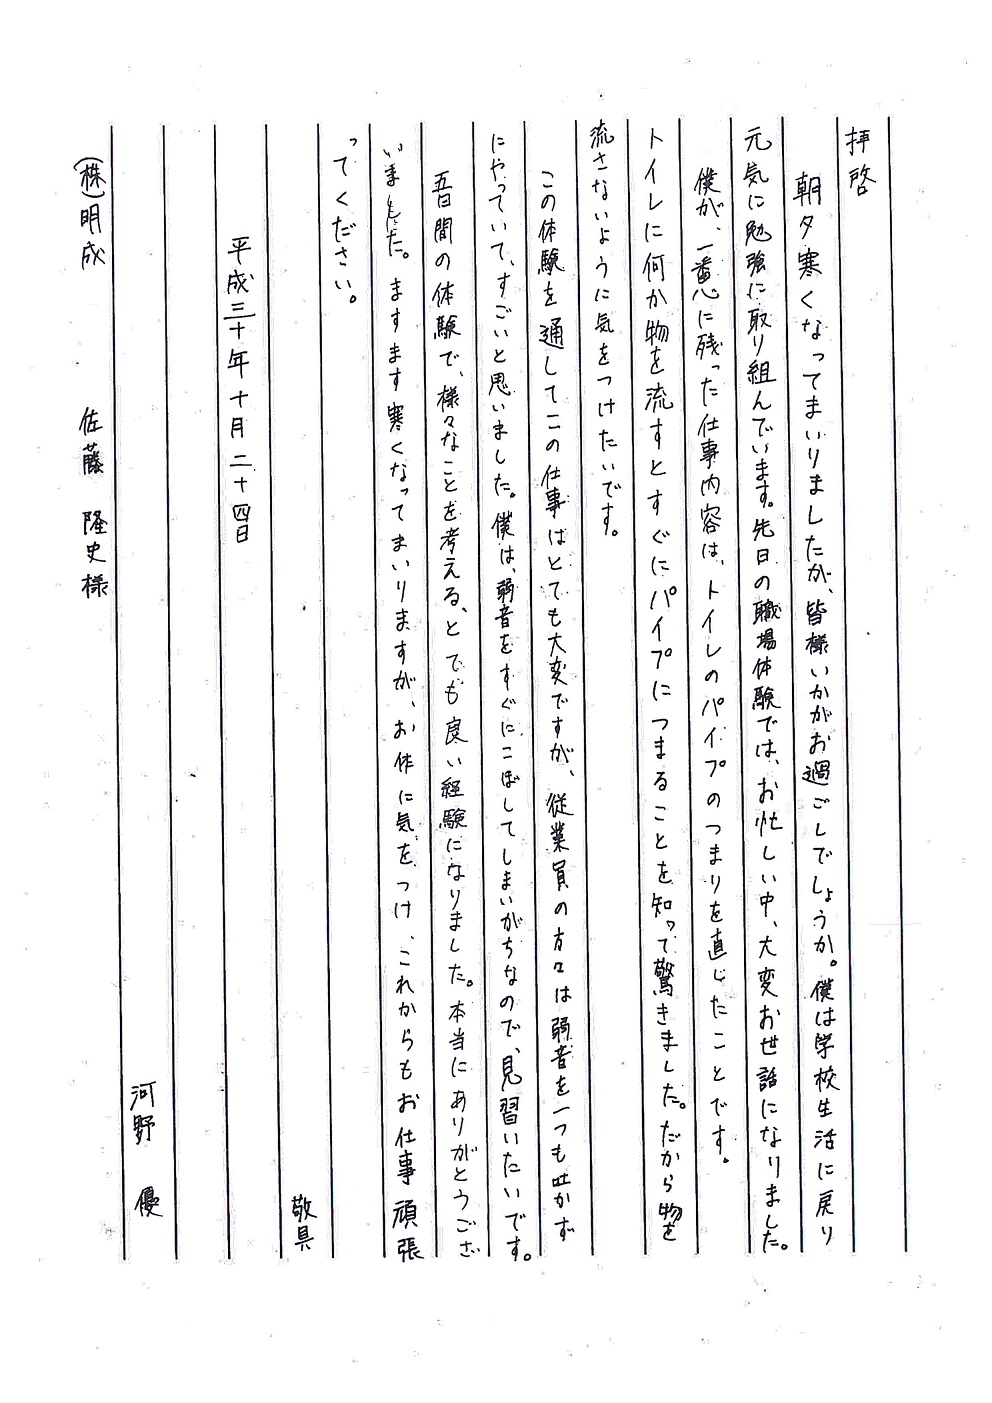 拝啓
朝夕寒くなってまいりましたが、皆様いかがお過ごしでしょうか。僕は学校生活に戻り
元気に勉強に取り組んでいます。先日の職場体験では、お忙しい中、大変お世話になりました。
僕が、一番心に残った仕事内容は、トイレのパイプのつまりを直したことです。
トイレに何か物を流すとすぐにパイプにつまることを知って驚きました。だから物を
流さないように気をつけたいです。
この体験を通してこの仕事はとても大変ですが、従業員の方々は弱音を一つも吐かず
にやっていて、すごいと思いました。僕は、弱音をすぐにこぼしてしまいがちなので、見習いたいです。
五日間の体験で、様々なことを考える、とても良い経験になりました。本当にありがとうござ
いました。ますます寒くなってまいりますが、お体に気をつけ、これからもお仕事頑張
ってください。
敬具
平成三十年十月二十四日
河野 優
(株)明成 佐藤 隆史様